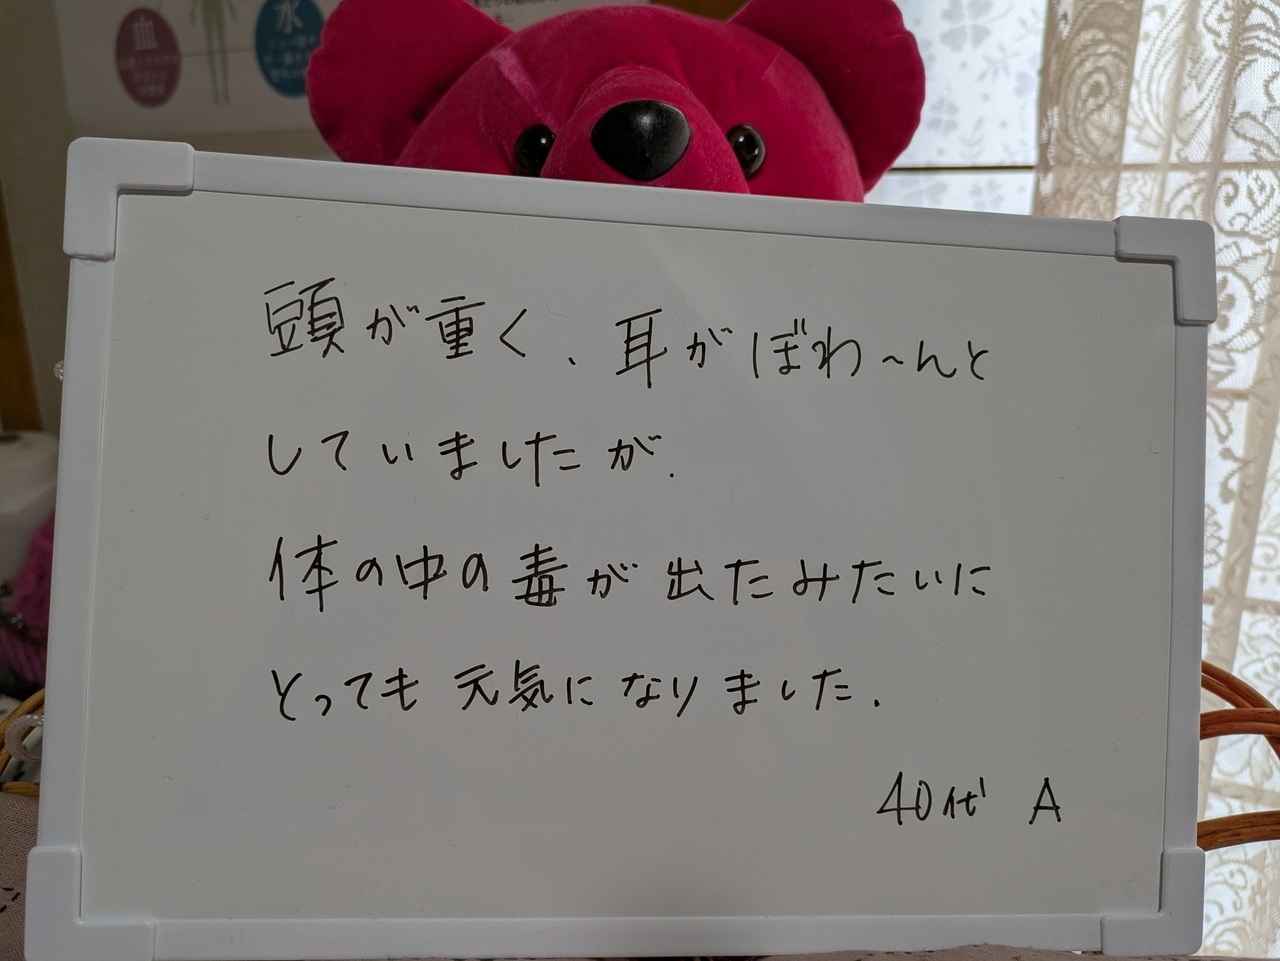 血
水
頭が重く、耳がぼわ~んと
していましたが、
体の中の毒が出たみたいに
とっても元気になりました.
40代 A